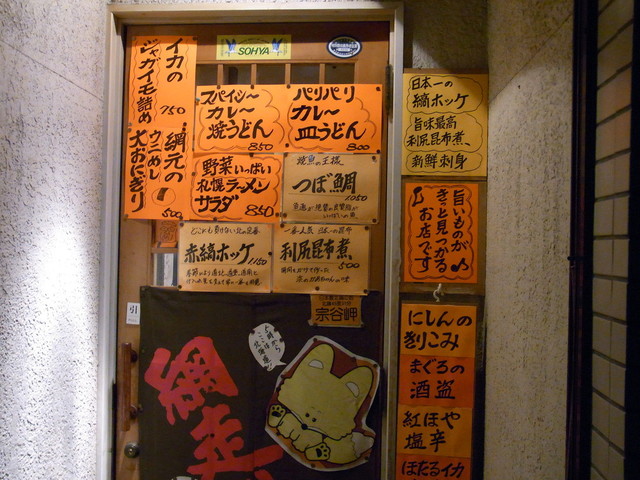 SOHYA
イカの
ジャガイモ詰め
750
網元の
ウニめし
大おにぎり
500
スパイシー
カレー
焼うどん
850
パリパリ
カレー
皿うどん
800
野菜いっぱい
札幌ラーメン
サラダ
850
焼魚の王様
つぼ鯛
1050
赤縞ホッケ
1150
一番人気 日本一の昆布
利尻昆布煮
500
宗谷岬
引
網走
日本一の
縞ホッケ
旨味最高
利尻昆布煮、
新鮮刺身
旨いものが
きっと見つかる
お店です
にしんの
きりこみ
まぐろの
酒盗
紅ほや
塩辛
ほたるイカ